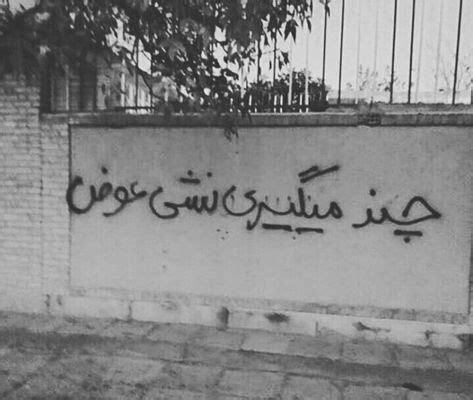 چند میگیری نشی عوض